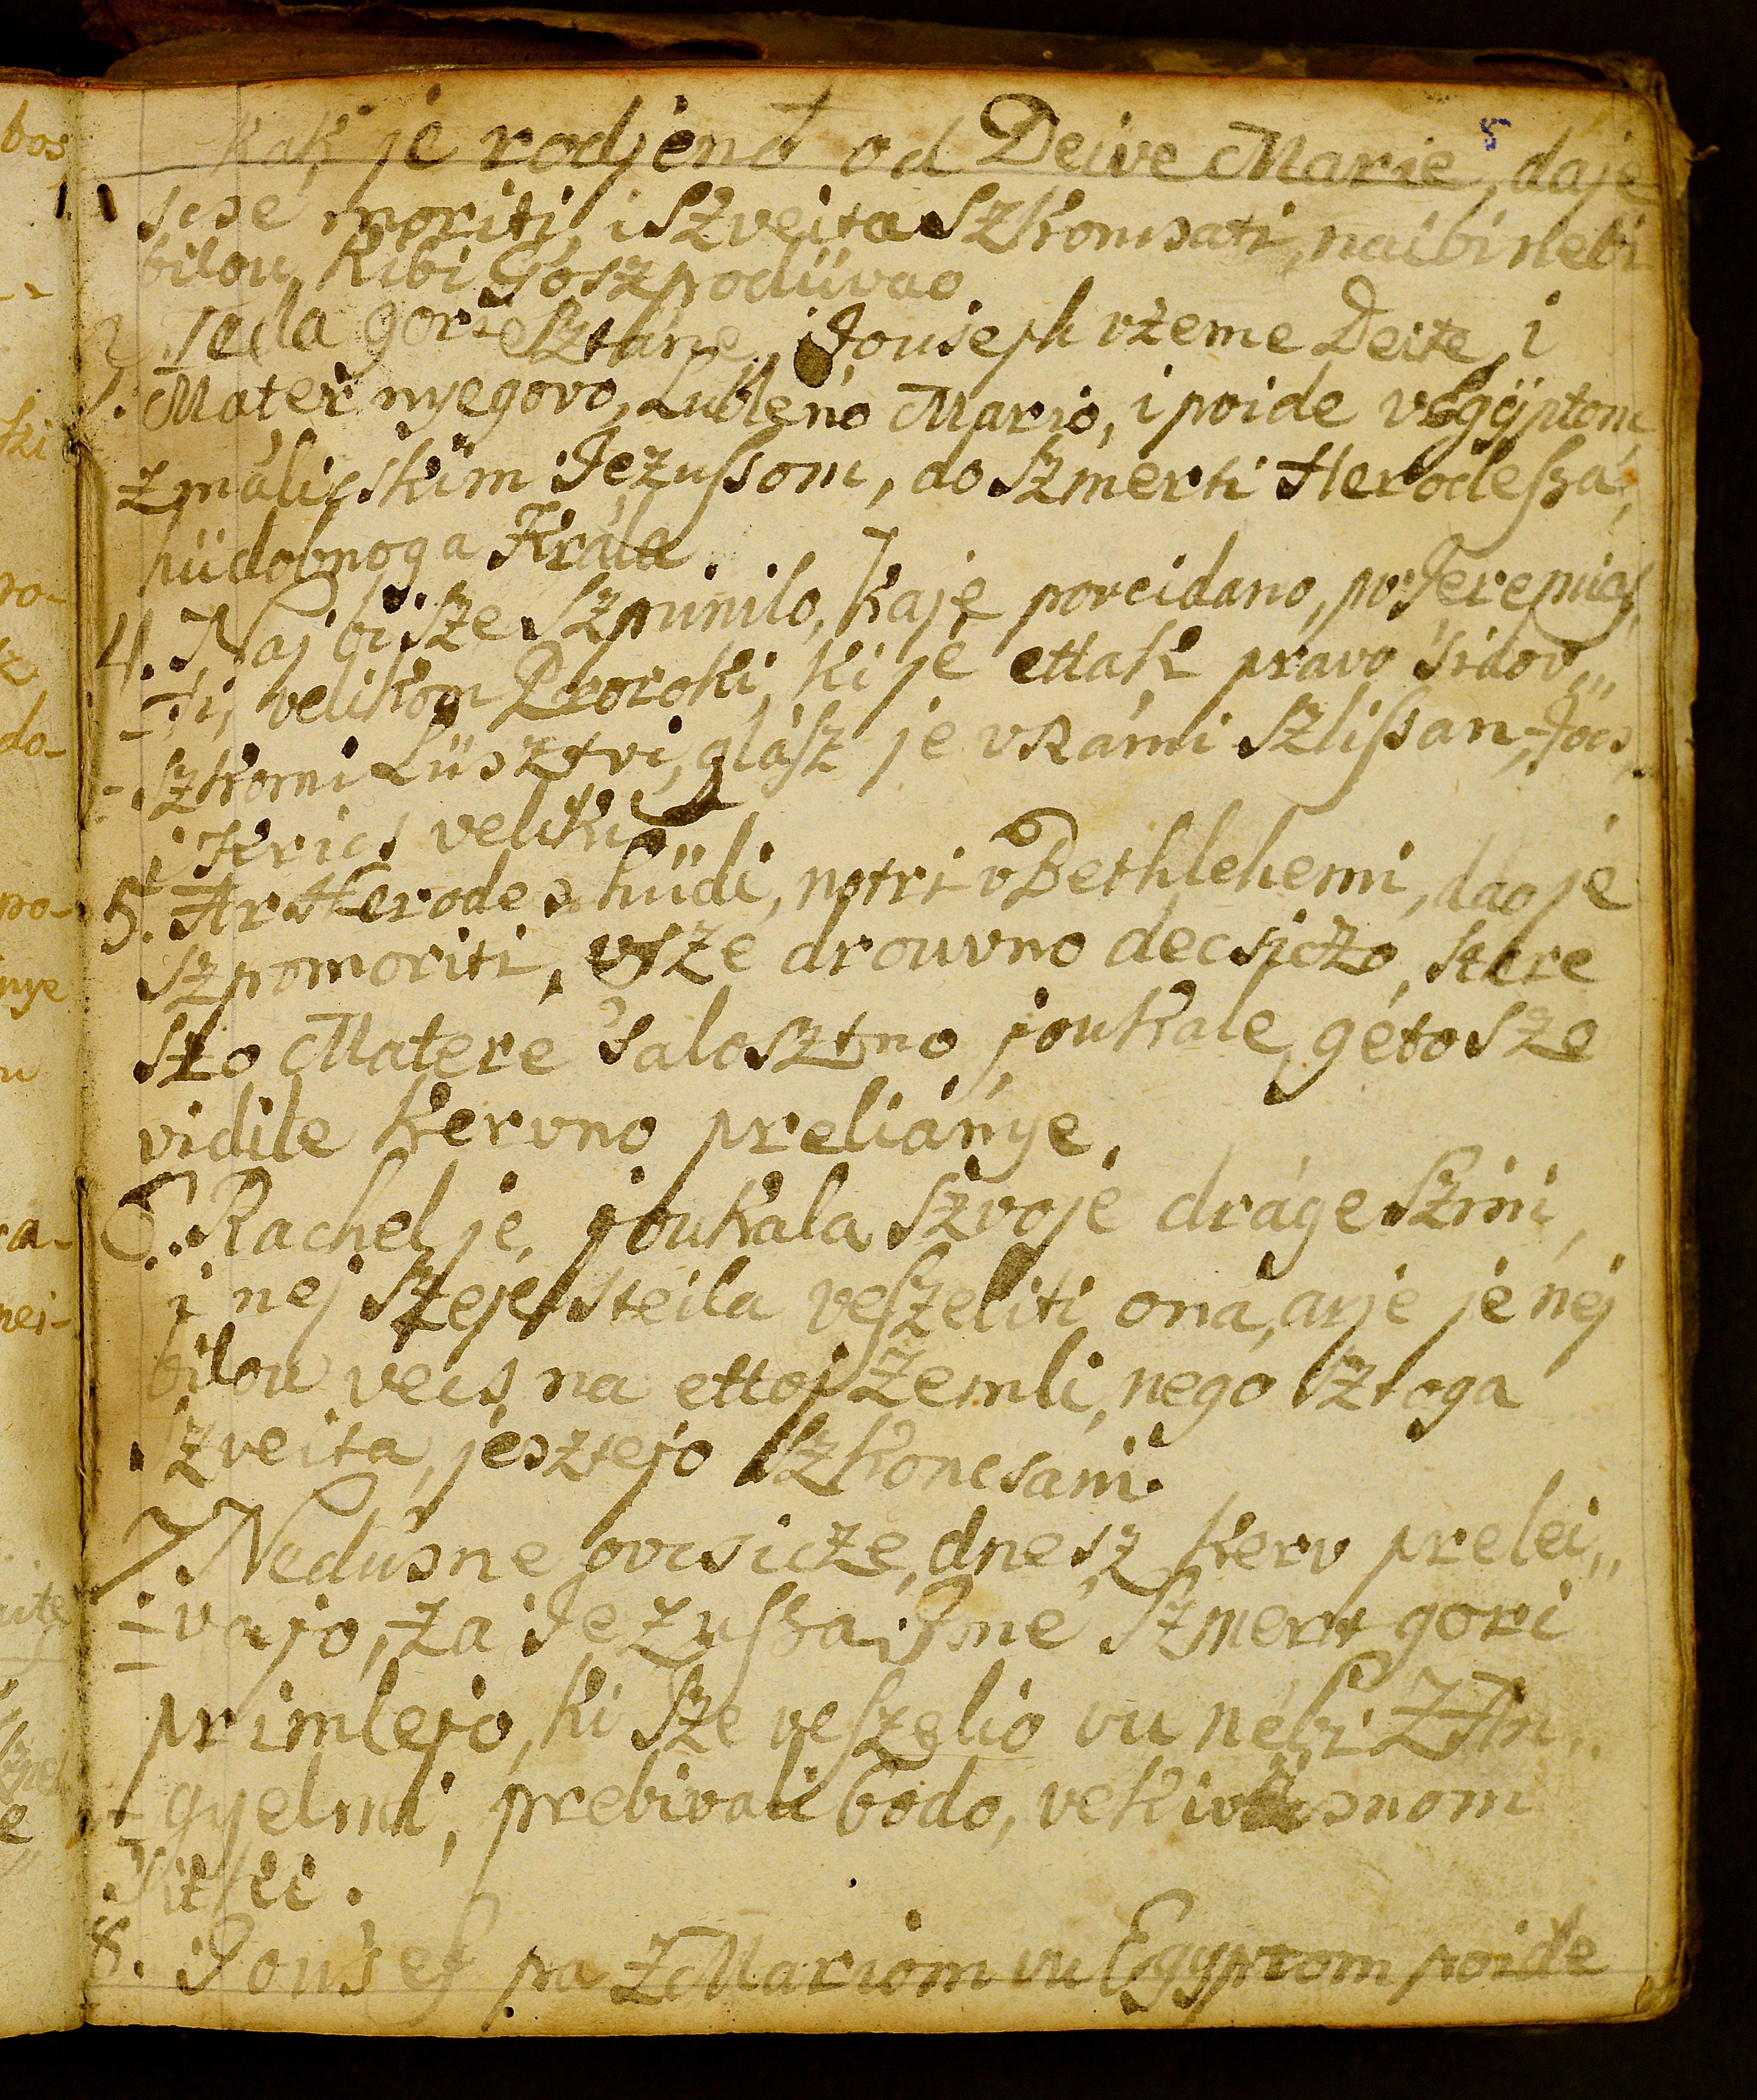 5
kak je rodjeno od Deive Marie, daje
scse moriti, i szveita szkoncsati, naibi nebi
bilou kibi Goszpodüvao
3. Teda gori sztáne, Jouseph vzeme Deite, i
Mater nyegovo, Lubleno Mario, i poide vEgÿptom
z málicskim Jezussom, do szmerti Herodessa,
hüdobnoga Krála.
4. Naj bi sze szpunilo, kaje poveidano, po Jeremias,,
-si, velikom Proroki, ki je ettak pravo 'sidov,,
-szkomi Lüsztvi, glász je vRámi szlissan, Jocs,
i Krics veliki
5. Ar Herodes hüdi, notri v Bethlehemi, dao je
szpomoriti, vsze drouvno decsiczo, stere
szo Matere 'salosztno joukale, geto sze
vidile kervno preliánye,
6. Rachel je, joukala szvoje dráge szini,
i nej szeje steila veszeliti ona, arje je nej
bilou vecs na ettoj Zemli, nego sztoga
szveita, jesztejo szkoncsani.
7. Nedú'sne ovcsicze, dnesz kerv prelei,,
-vajo, za Jezussa Imé szmert gori
primlejo, ki sze veszelio vu nébi Z An,,
-gyelmi, prebivali bodo, vekivecsnom
'Sitki.
8. Jou'sef pa Z Mariom vu Egyptom poide